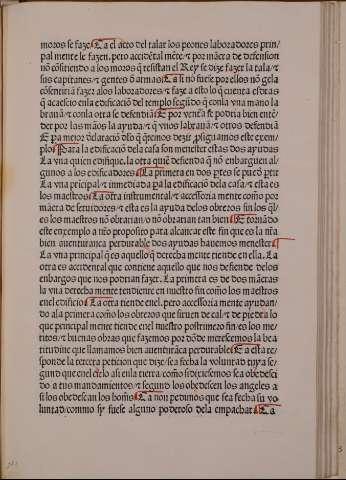 moros se faze. Ca el acto del talar los peones labradores prin/
pal mente le fazen. pero accidẽtal mẽte. ⁊ por mãera de defension
nõ cõsintiendo a los moros q̃ resistan el Rey se dize fazer la tala. ⁊
sus capitanes. ⁊ gentes õ armas. Ca si nõ fuese por ellos nõ gela
cõsentiriã fazer alos labradores. ⁊ faze a esto lo q̃ cuenta esdras
q̃ acaescio en la edificaciõ del templo segũdo q̃ conla vna mano la
brauã. ⁊ conla otra se defendiã. E por vẽtura se podria bien entẽ/
der por las mãos la ayuda. ⁊ q̃ vnos labrauã. ⁊ otros defendiã
E pa mejor declaraciõ dlo q̃ q̃remos dezir. psigamos este exem/
plo. Para la edificaciõ dela casa son menester estas dos ayudas
La vna quien edifique. la otra quiẽ defienda q̃ nõ enbarguen al/
gunos a los edificadores. La primera en dos ptes se puede ptir
La vna pricipal. ⁊ inmediada pa la edificaciõ dela casa. ⁊ esta es
los maestros. La otra instrumental. ⁊ accessoria mente como por
mãera de seruidores. ⁊ esta es la ayuda delos obreros sin los q̃les
los maestros nõ obrarian. o nõ obrarian tan bien. E tornãdo
este exemplo a nr̃o proposito para alcançar este fin que es la nr̃a
bien auenturança perdurable dos ayudas hauemos menester.
La vna principal q̃ es aquello q̃ derecha mente tiende en ella. La
otra es accidental que contiene aquello que nos defiende delos
enbargos que nos podrian fazer. La primera es de dos mãeras
la vna derecha mente tendiente en nuestro fin como los maestros
enel edificio. La otra tiende enel. pero accessoria mente ayudan/
do ala primera como los obreros que siruen de cal. ⁊ de piedra lo
que principal mente tiende enel nuestro postrimero fin. es los me/
ritos. ⁊ buenas obras que fazemos por dõde merescemos la bea
titudine que llamamos bien auenturãça perdurable. E a esta re/
sponde la tercera peticion que dize. sea fecha la voluntad tuya se/
gund que enel cielo asi en la tierra. como si dixiesemos sea obedesci
do a tus mandamientos. ⁊ segund los obedescen los angeles a
si los obedescan los hoñs. Ca nõ pedimos que sea fecha su vo
luntad. commo sy fuese alguno poderoso dela enpachar. Ca